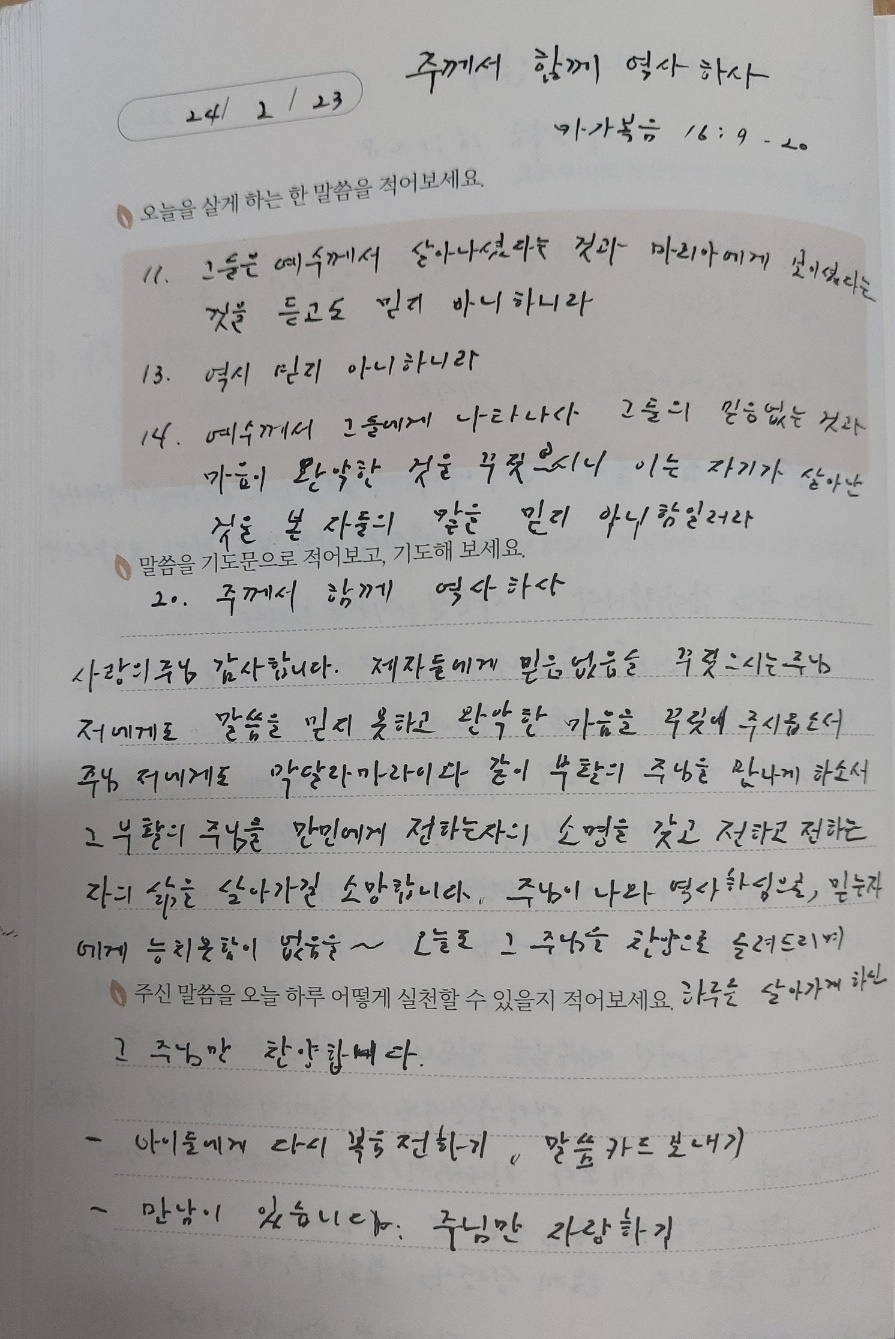 주께서 함께 역사 하사
24/ 2 / 23
마가복음 16 : 9 - 20
오늘을 살게 하는 한 말씀을 적어보세요.
11. 그들은 예수께서 살아나셨다는 것과 마리아에게 보이셨다는
것을 듣고도 믿지 아니하니라
13. 역시 믿지 아니하니라
14. 예수께서 그들에게 나타나사 그들의 믿음없는 것과
마음이 완악한 것을 꾸짖으시니 이는 자기가 살아난
것을 본 자들의 말을 믿지 아니함일러라
말씀을 기도문으로 적어보고, 기도해 보세요.
20. 주께서 함께 역사하사
사랑의주님 감사합니다. 제자들에게 믿음없음을 꾸짖으시는주님
저에게도 말씀을 믿지 못하고 완악한 마음을 꾸짖어 주시옵소서
주님 저에게도 막달라마라이다 같이 부활의 주님을 만나게 하소서
그 부활의 주님을 만민에게 전하는자의 소명을 갖고 전하고 전하는
자의 삶을 살아가길 소망합니다. 주님이 나와 역사하심으로, 믿는자
에게 능치못함이 없음을~ 오늘도 그 주님을 찬양으로 올려드리며
주신 말씀을 오늘 하루 어떻게 실천할 수 있을지 적어보세요. 하루를 살아가게 하신
그 주님만 찬양합니다.
- 아이들에게 다시 복음전하기, 말씀카드보내기
- 만남이 있습니다. 주님만 자랑하기